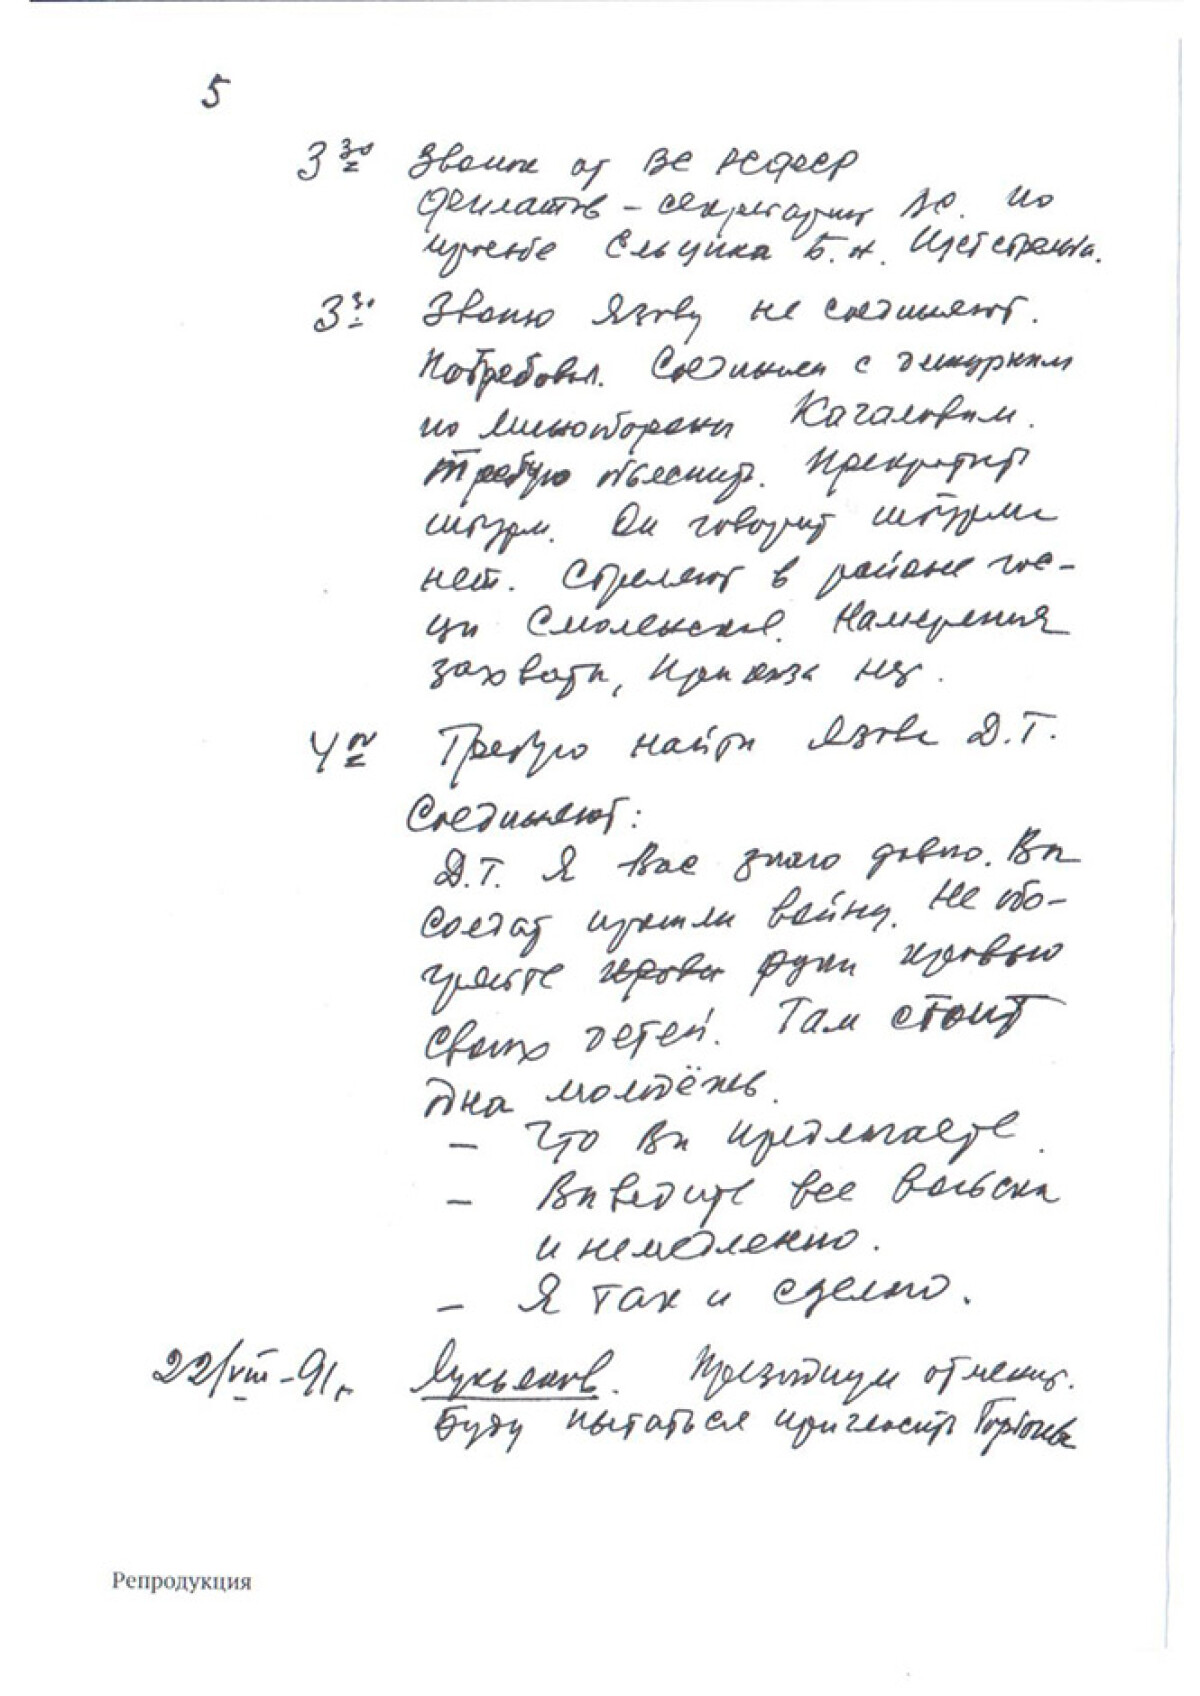 5
3 30 Звонок от ВС РСФСР
Филатов – секретариат ВС. По
просьбе Ельцина Б.Н. Идет стрельба.
3 30 Звоню Язову не соединяют.
Потребовал. Соединили с дежурным
по Минобороны Качаловым.
Требую объяснить. Прекратить
штурм. Он говорит штурма
нет. Стреляют в районе
Смоленской. Намерения
захвата, приказа нет.
4 00 Требую найти Язова Д.Т.
Соединяют:
Д.Т. Я Вас знаю давно. Вы
солдат прошли войну. Не обо-
грейте крови руки кровью
своих детей. Там стоит
одна молодёжь.
– Что Вы предлагаете.
– Выведите все войска
и немедленно.
– Я так и сделаю.
22/VIII-91г. Лукьянов. Президиум отменит.
Буду пытаться пригласить Горбачева
Репродукция